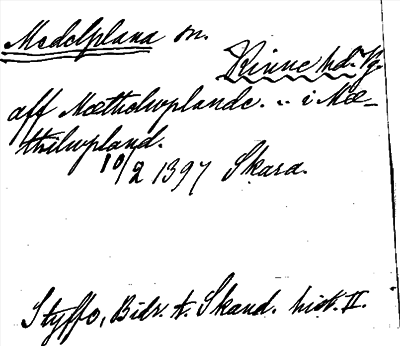 Medelplana sn.
Kinne hd. Vg.
aff Mætthelwplande. .. i Mæ-
thelwpland.
10/2 1397 Skara.
Styffe, Bidr. t. Skand. hist. II.